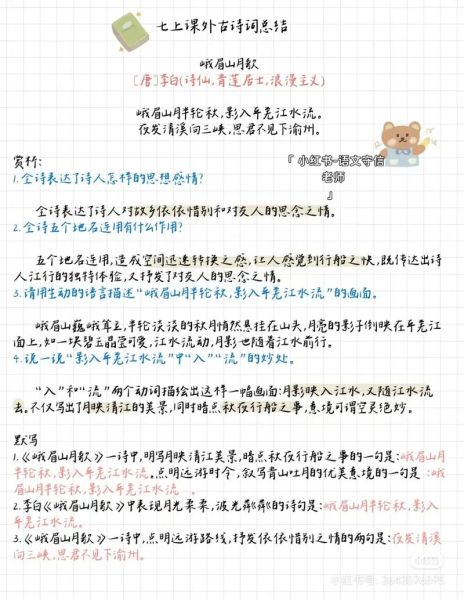 七上课外古诗词总结
峨眉山月歌
[唐]李白(诗仙,青莲居士,浪漫主义)
峨眉山月半轮秋,影入平羌江水流。
夜发清溪向三峡,思君不见下渝州。
『小红书-语文守信
老师
』
赏析:
1.全诗表达了诗人怎样的思想感情?
全诗表达了诗人对故乡依依惜别和对友人的思念之情。
2.全诗五个地名连用有什么作用?
五个地名连用,造成空间迅速转换之感,让人感觉到行船之快,既传达出诗
人江行的独特体验,又抒发了对友人的思念之情。
3.请用生动的语言描述“峨眉山月半轮秋,影入平羌江水流”的画面。
峨眉山巍峨耸立,半轮淡淡的秋月悄然悬挂在山头,月亮的影子倒映在平羌江
面上,如一块碧玉晶莹可爱,江水流动,月影也随着江水前行。
4.说一说“影入平羌江水流”中“入”“流”的妙处。
“入”和“流”两个动词描绘出这样一幅画面:月影映入江水,又随江水流
去。不仅写出了月映清江的美景,同时暗点秋夜行船之事,意境可谓空灵绝妙。
默写
1.《峨眉山月歌》一诗中,明写月映清江美景,暗点秋夜行船之事的一句是:峨眉山月
半轮秋,影入平羌江水流。点明远游时令,叙写青山吐月的优美意境的一句是:峨
眉山月半轮秋,影入平羌江水流 。
2.李白《峨眉山月歌》中表现月光柔柔,波光粼粼的诗句是:峨眉山月半轮秋,影入
平羌江水流。
3.《峨眉山月歌》一诗中,点明远游路线,抒发依依惜别之情的两句是:夜发清溪
向三峡,思君不见下渝州。
小红书